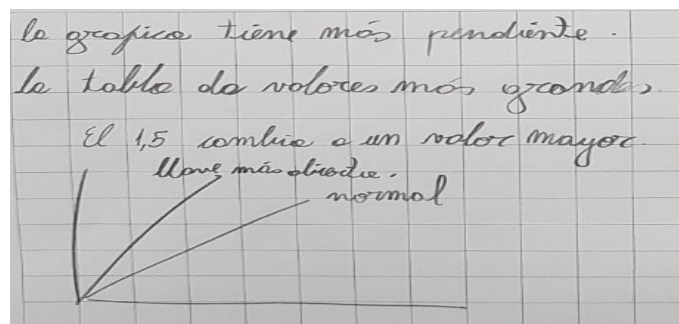 la grafica tiene más pendiente.
la tabla da valores más grandes
El 1,5 cambia a un valor mayor.
llave más abierta.
normal